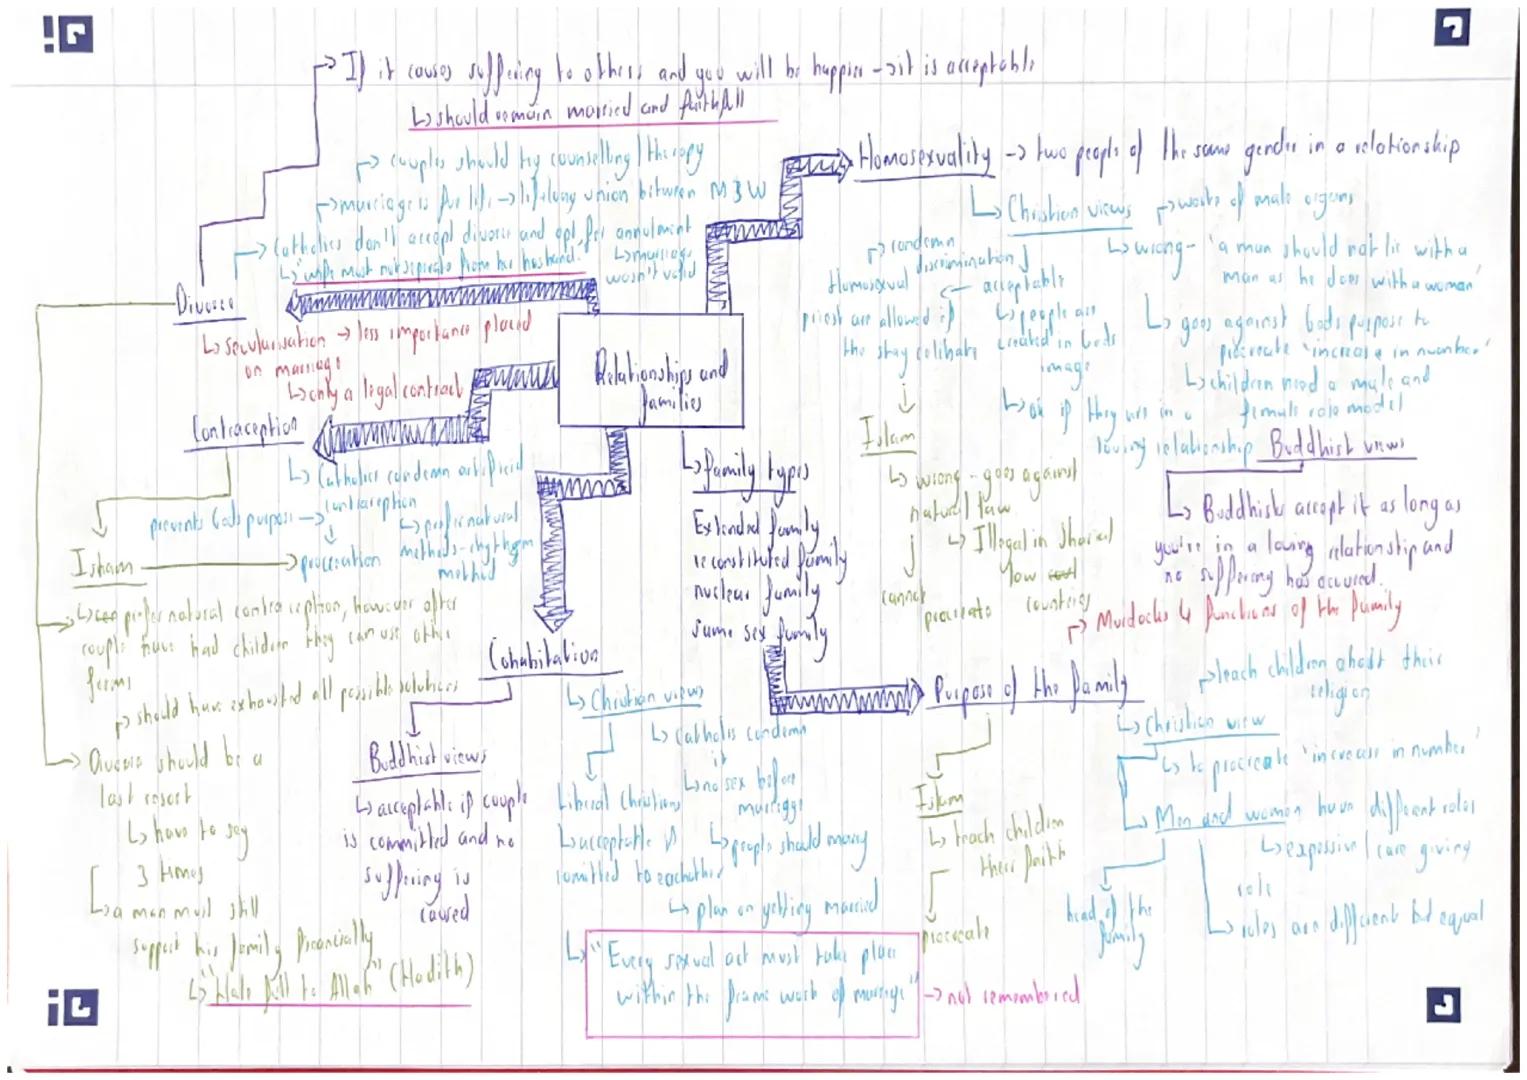 If it causes suffering to others and you will be happier → it is acceptable
↳ should remain married and faithfull
→ couples should try counselling / therapy
→ marriage is for life → lifelong union between M & W
→ Catholics don't accept divorce and opt for annulment
↳ "wife must not seperate from her husband."
↳ marriage
wasn't valid
Divorce
↳ secularisation → less importance placed
on marriage
↳ only a legal contract
Relationships and
families
Contraception
↳ Catholics condemn artificial
contraception
prevents Gods purpose →
procreation
↳ prefer natural
methods - rhythm
method
Islam
↳ prefer natural contraception, however after
couple have had children they can use other
forms
→ should have exhausted all possible solutions
→ Divorce should be a
last resort
↳ have to say
3 times
↳ a man must still
support his family financially
↳ "Hate full to Allah" (Hadith)
Cohabitation
Buddhist views
↳ acceptable if couple
is committed and no
suffering is
caused
↳ Christian views
↳ Catholics condemn
it
↳ no sex before
marriage
↳ people should marry
Liberal Christians
↳ acceptable if
comitted to eachother
↳ plan on getting married
↳ "Every sexual act must take place
within the frame work of marriage"
→ not remembered
↳ Family types
Extended family
reconstituted family
nuclear family
same sex family
Homosexuality → two people of the same gender in a relationship
↳ Christian views
→ waste of male organs
↳ wrong - 'a man should not lie with a
man as he does with a woman'
↳ goes against Gods purpose to
procreate 'increase in number'
↳ children need a male and
female role model
→ condemn
discrimination
← acceptable
↳ people are
created in Gods
image
Homosexual
priest are allowed if
the stay celibate
↳ ok if they are in a
loving relationship
Islam
↳ wrong - goes against
natural law
↳ Illegal in Sharia
law
countries
cannot
procreate
Buddhist views
↳ Buddhists accept it as long as
you're in a loving relationship and
no suffering has occured.
→ Murdocks 4 functions of the family
Purpose of the family
→ teach children about their
religion
↳ Christian view
↳ to procreate 'increase in number'
↳ Men and women have different roles
↳ expressive / care giving
role
head of the
family
↳ roles are different but equal
Islam
↳ teach children
their faith
procreate